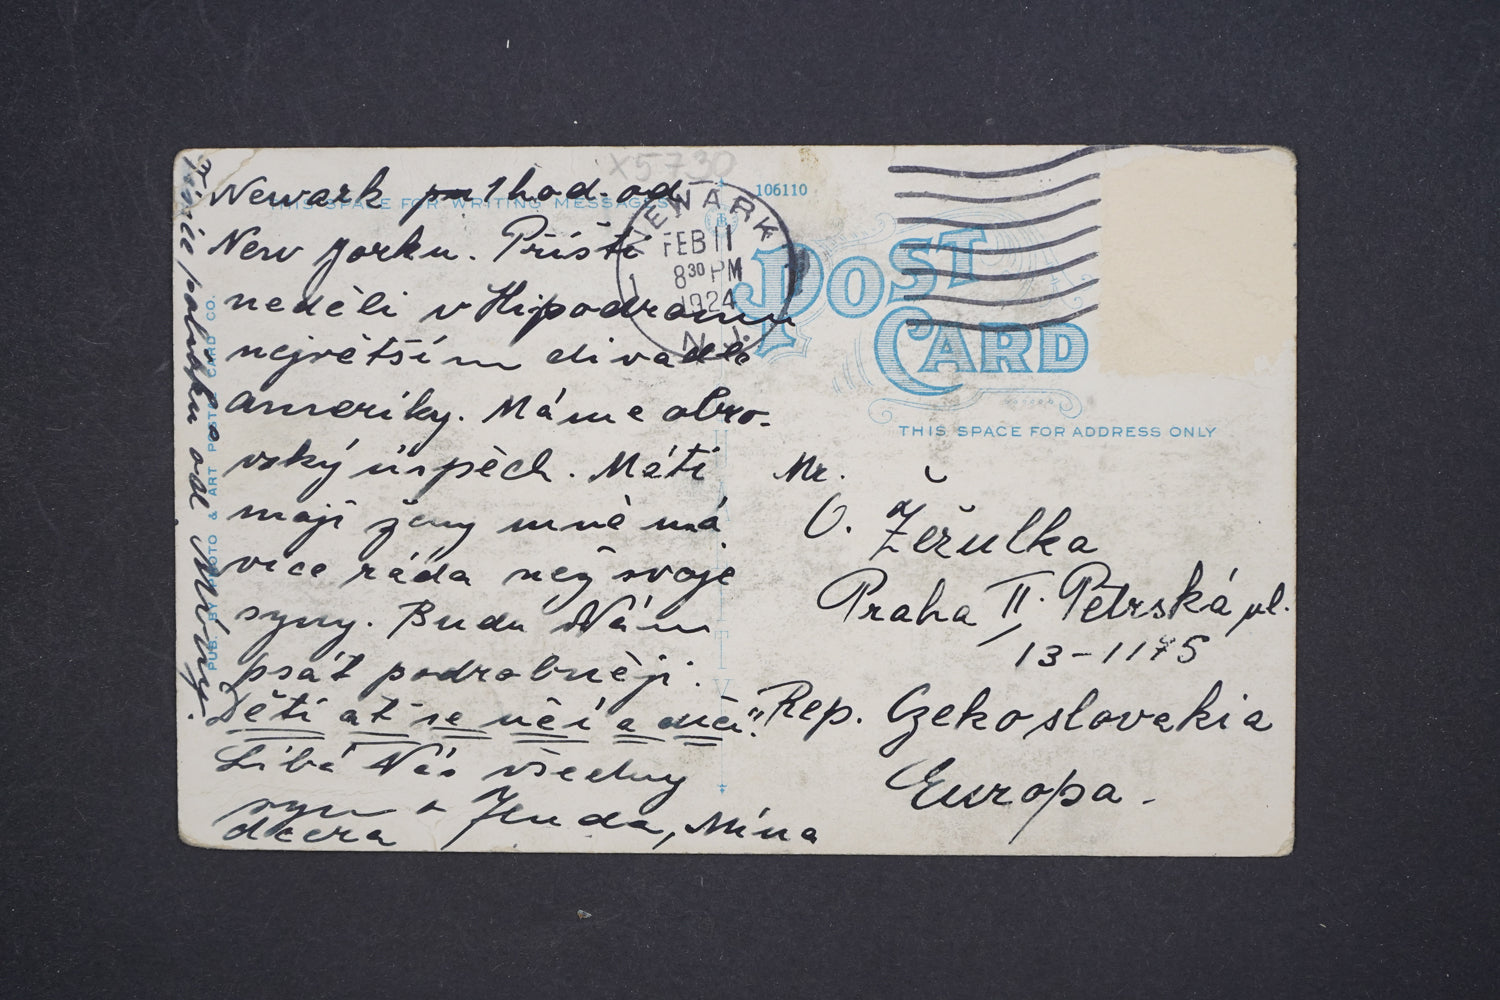 X5730
Newark 1 hod. od
New Jorku. Příští
neděli v Hipodromu
největším divadle
Ameriky. Máme obro-
vský úspěch. Máti
mojí ženy mně má
více ráda než svoje
syny. Budu Vám
psát podrobněji.
Děti ať se učí a učí!!
Líbá Vás všechny
syn + Jenda, Mína
dcera
od Míny.
THIS SPACE FOR WRITING MESSAGES
PUB. BY PHOTO & ART POST CARD CO.
NEWARK
FEB 11
8 30 PM
1924
N.J.
106110
POST
CARD
THIS SPACE FOR ADDRESS ONLY
Mr.
O. Žeřulka
Praha II. Petrská ul.
13-1175
Rep. Czekoslovakia
Europa.